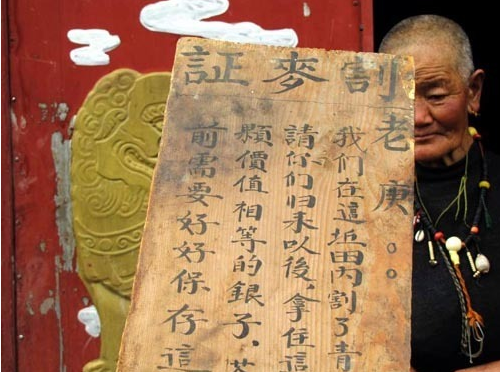 割麥証
老庚。。
我们在這坵田内割了青
請你们归来以後，拿住這
顆價值相等的銀子．
前需要好好保存這